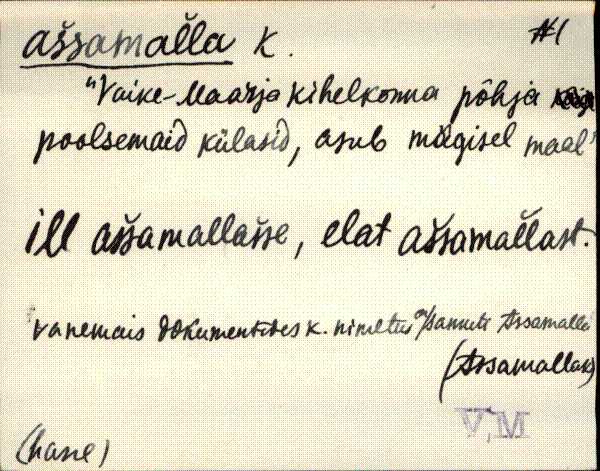 aššamalla k. #1
"Väike-Maarja kihelkonna põhja
poolsemaid külasid, asub mägisel maal"
ill aššamallasse, elat aššamallast.
vanemais dokumentides k. nimetus Assamalla
(Assamallast)
V,M
(hasse)